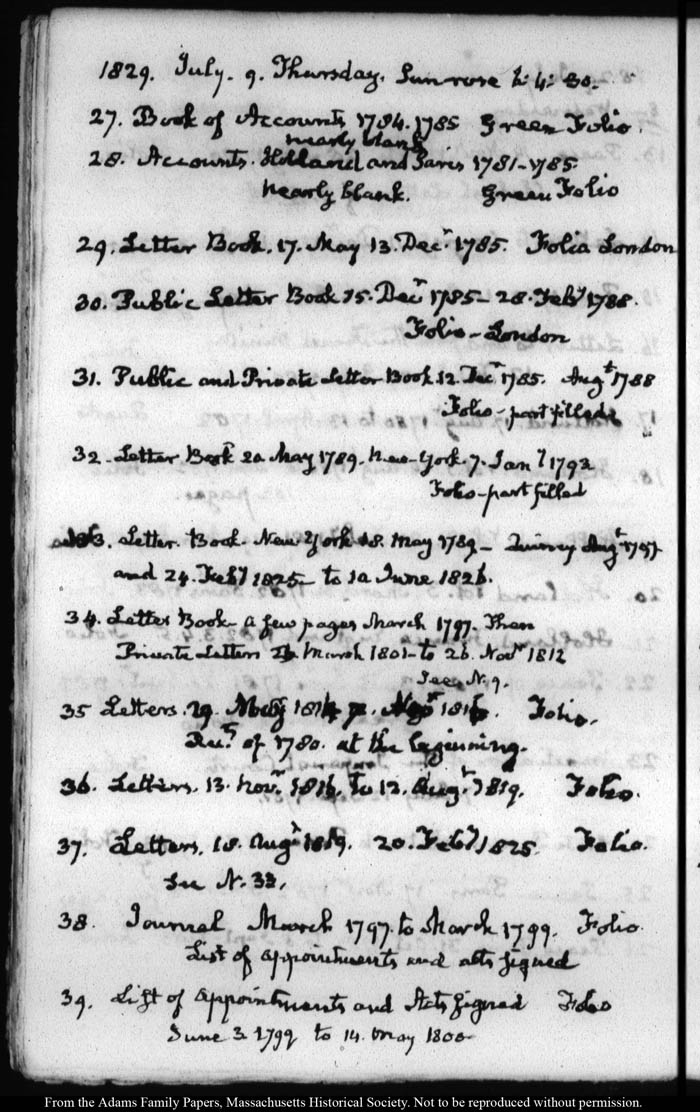 1829. July. 9. Thursday. Sun rose h: 4: 30.
27. Book of Accounts 1784. 1785 Green Folio.
nearly blank
28. Accounts. Holland and Paris 1781–1785.
nearly blank. Green Folio
29. Letter Book. 17. May 13. Decr 1785. Folio London
30. Public Letter Book 15. Decr 1785– 28. Feby 1788.
Folio – London
31. Public and Private Letter Book 12. Decr 1785. Augt 1788
Folio – part filled
32. Letter Book 20 May 1789. New-York. 7. Jany 1793
Folio – part filled
33. Letter Book. New York 18. May 1789 – Quincy Augt
and 24. Feby 1825 – to 10 June 1826.
34. Letter Book – a few pages March 1797. Then
Private Letters March 1801 – to 26. Novr 1812
See N. 9.
35 Letters. 29. 1816. Folio.
of 1780. at the beginning.
36. Letters. 13. Novr 1816. To 12. Augt 1819. Folio.
37. Letters. 18. Augt 1819. 20. Feby 1825. Folio.
See N. 33.
38. Journal March 1797. to March 1799. Folio
List of appointments and acts signed
39. List of Appointments and Acts signed Folio
June 3 1799 to 14. May 1800
From the Adams Family Papers, Massachusetts Historical Society. Not to be reproduced without permission.